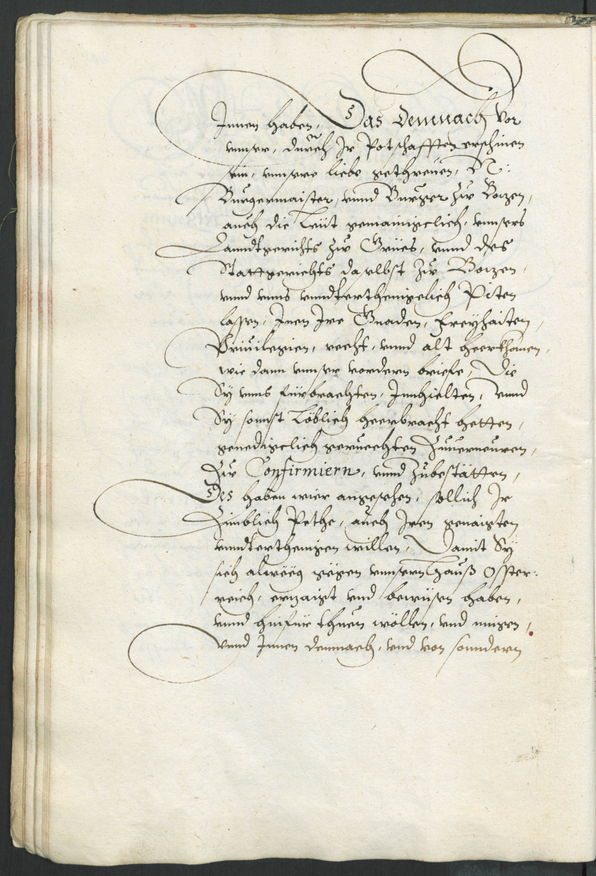 Innen haben, Das demnach vor
vnnser, durch Ir Potschafften erschinen
sin, vnnsere liebe gethrewen, N:
Burgermaister, vnnd Burger zu Bozen,
auch die Leüt gemainigclich, vnnsers
Lanndtgerichts zu Gries, vnnd des
Stattgerichts daselbst zu Bozen,
vnnd vnns vnndterthenigelich Piten
lassen, Inen Ire Gnaden, Freyhaiten,
Priuilegien, recht, vnnd alt heerkhomen,
wie dann vnnser vordern briefe, Die
Sy vnns fürbrachten, Innhielten, vnnd
Sy sonnst Löblich heerbracht hetten,
genedigclich geruechten Zuuerneuren,
zu Confirmiern, vnnd Zubestätten,
Des haben wier angesehen, sollich Ir
Zimblich Pethe, auch Iren genaigten
vnndterthenigen willen, Damit Sy
sich alweeg gegen vnnserm Hauß Österr:
reich, erzaigt vnd bewisen haben,
vnnd hinfür thuen wöllen, vnd mugen,
vnnd Innen demnach, vnd von sonndern